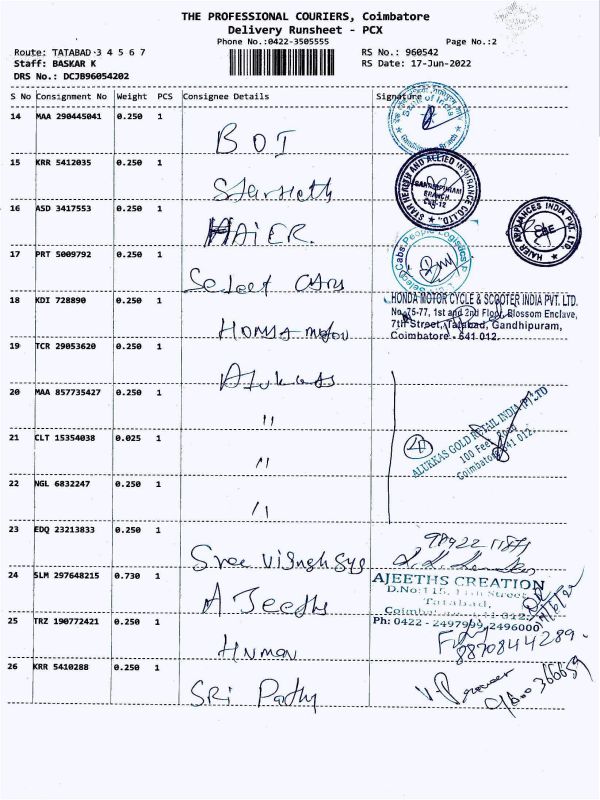 THE PROFESSIONAL COURIERS, Coimbatore
Delivery Runsheet - PCX
Phone No.:0422-3505555
Page No.:2
Route: TATABAD 3 4 5 6 7
RS No.: 960542
Staff: BASKAR K
RS Date: 17-Jun-2022
DRS No.: DCJB96054202
S No Consignment No Weight PCS Consignee Details Signature
14 MAA 290445041 0.250 1
BOI
Bank of India
15 KRR 5412035 0.250 1
STAR HEALTH AND ALLIED INSURANCE CO.LTD.
GANDHIPURAM
BRANCH
CBE-12
16 ASD 3417553 0.250 1
HAIER
HAIER APPLIANCES INDIA PVT. LTD.
CBE
17 PRT 5009792 0.250 1
Select Cars
Select Cabs People Logistics P
18 KDI 728890 0.250 1
Honda motor
HONDA MOTOR CYCLE & SCOOTER INDIA PVT. LTD.
No. 75-77, 1st and 2nd Floor, Blossom Enclave,
7th Street, Tatabad, Gandhipuram,
Coimbatore - 641 012.
19 TCR 29053620 0.250 1
Alukkas
20 MAA 857735427 0.250 1
"
21 CLT 15354038 0.025 1
"
4
ALUKKAS GOLD RETAIL INDIA (P) LTD
100 Feet Road
Coimbatore-641 012.
22 NGL 6832247 0.250 1
"
23 EDQ 23213833 0.250 1
Sree Vignesh Sys
24 SLM 297648215 0.730 1
A Jeeths
AJEETHS CREATION
D.No:115, 11th Street,
Tatabad,
Coimbatore-641 012.
Ph: 0422 - 2497999, 2496000
25 TRZ 190772421 0.250 1
8870844289
26 KRR 5410288 0.250 1
Sri Pathy